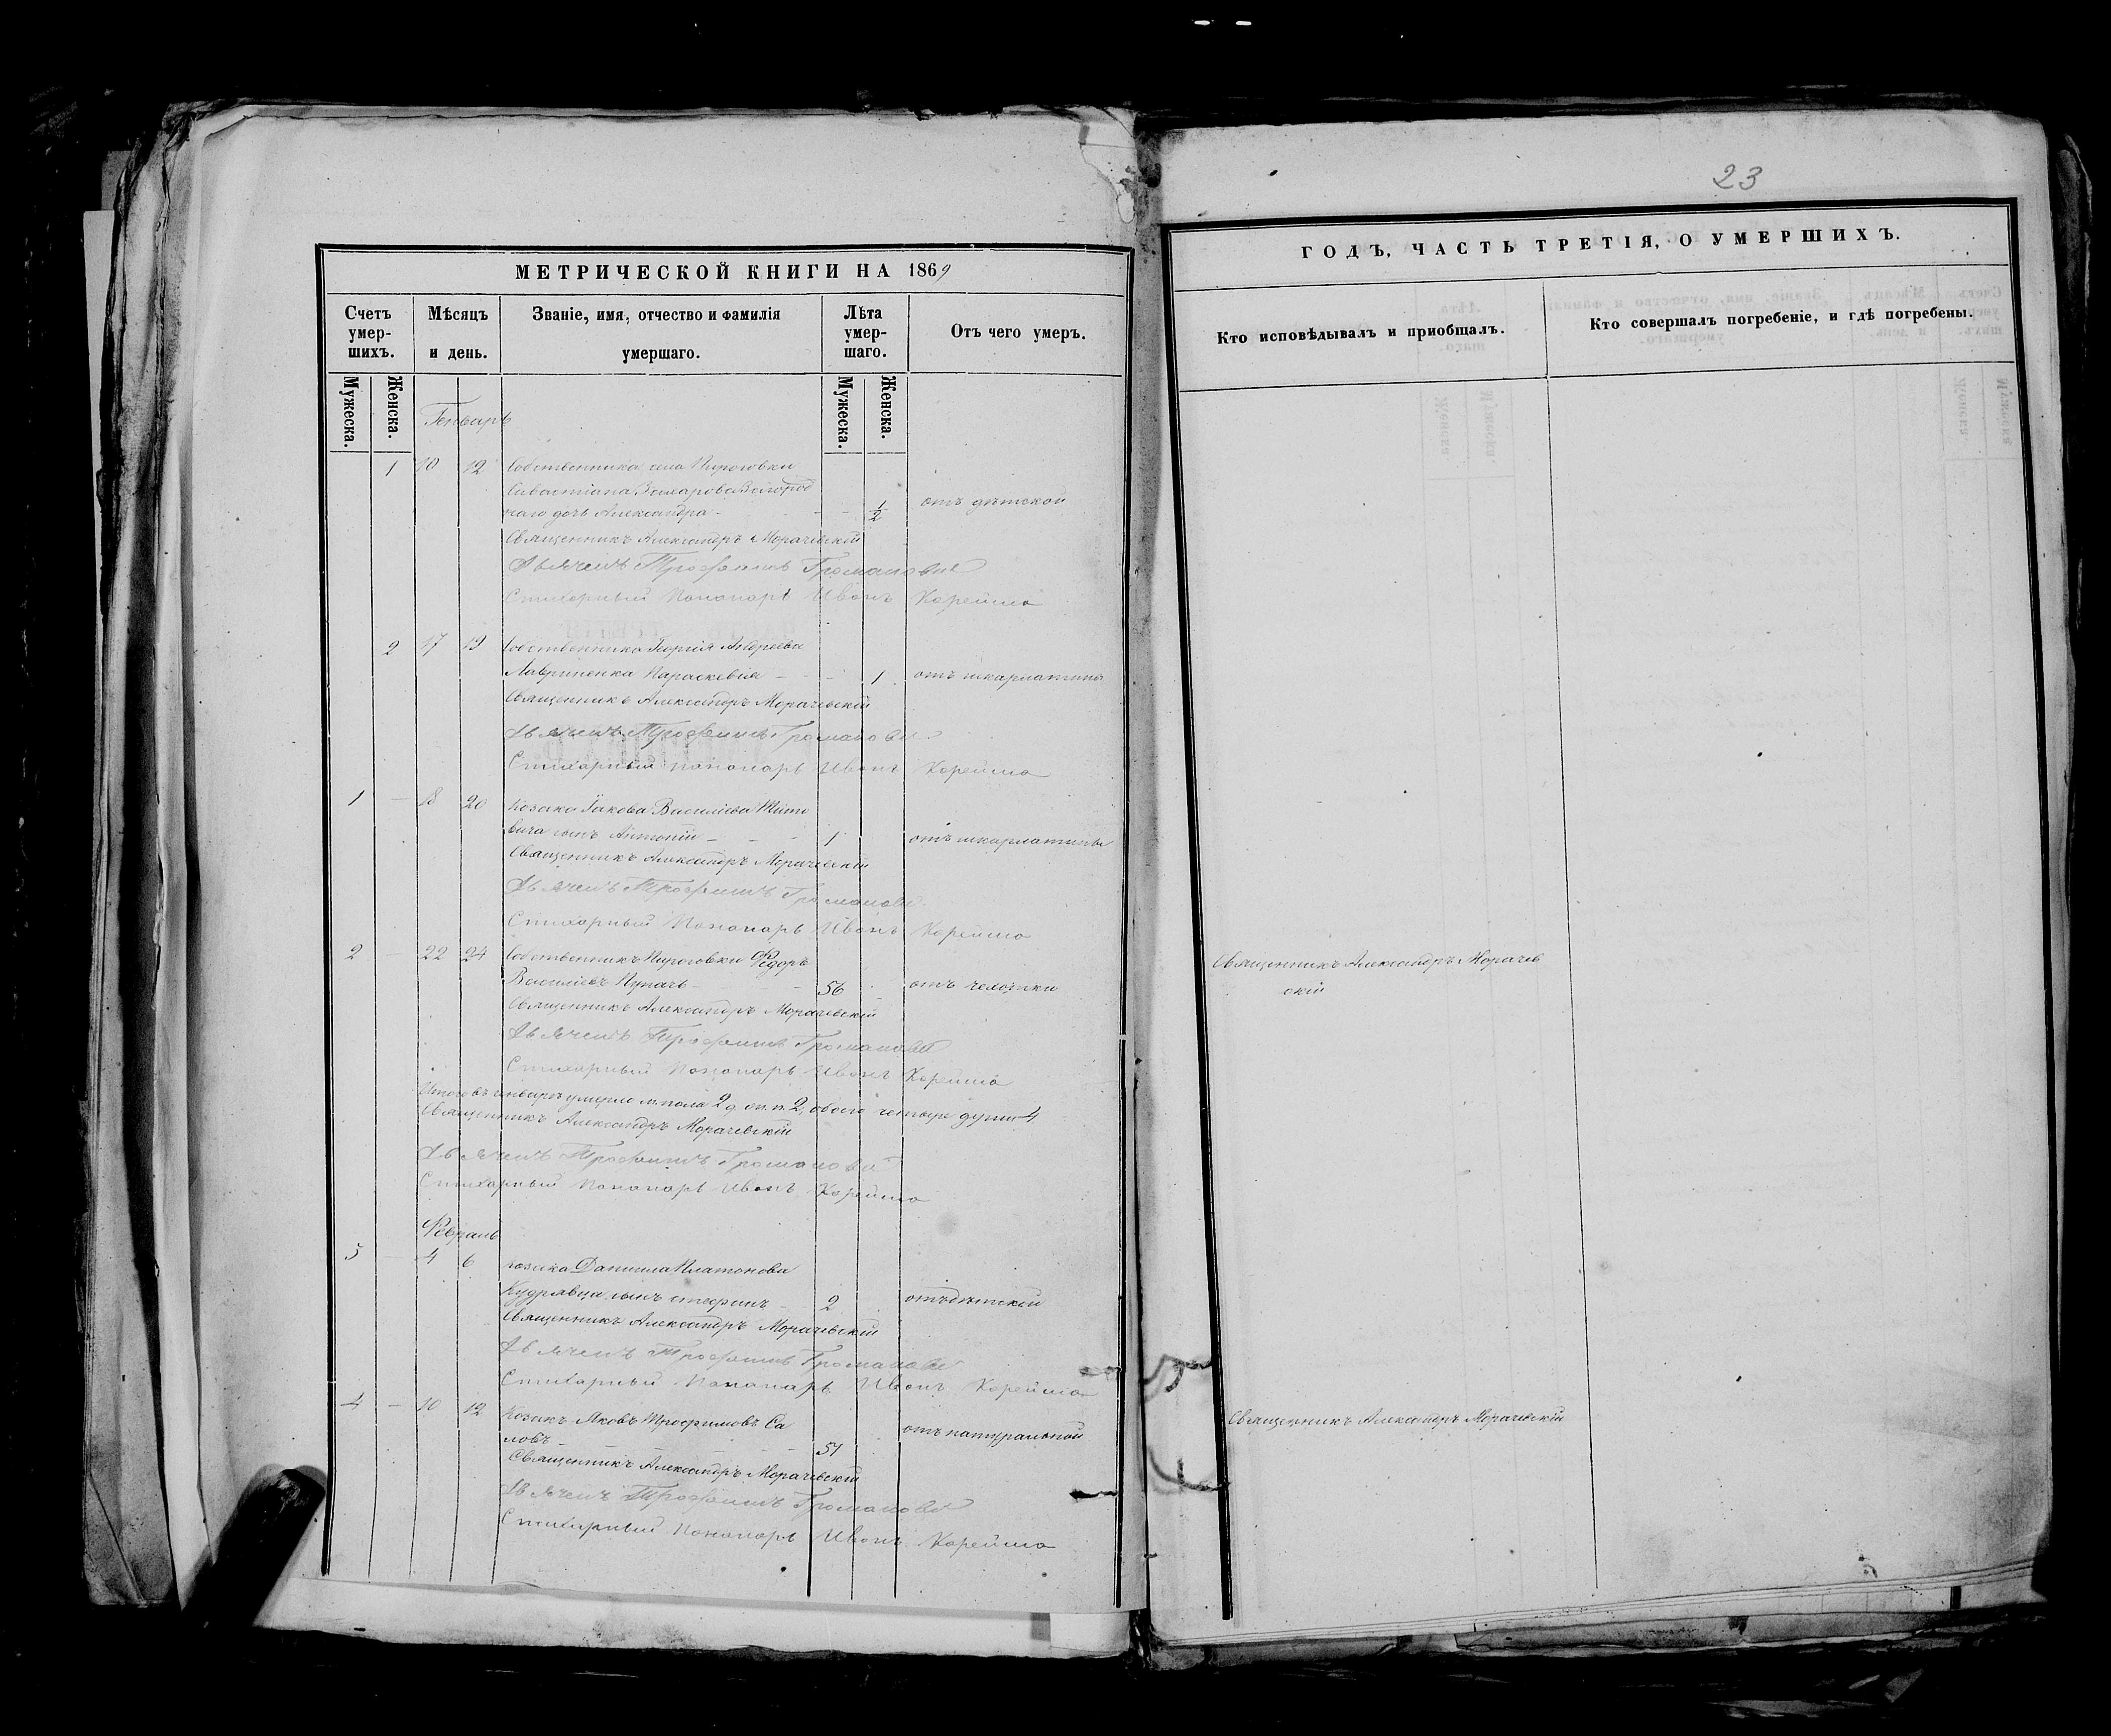 23
МЕТРИЧЕСКОЙ КНИГИ НА 1869
ГОДЪ, ЧАСТЬ ТРЕТІЯ, О УМЕРШИХЪ.
Счетъ умер-шихъ.
Мѣсяцъ и день.
Званіе, имя, отчество и фамилія умершаго.
Лѣта умер-шаго.
Отъ чего умеръ.
Кто исповѣдывалъ и приобщалъ.
Кто совершалъ погребеніе, и гдѣ погребены.
Мужеска. Женска.
Мужеска. Женска.
Генварь
1 10 12 Собственника села Пироговки
Савастіана Захарова
наго дочь Александра 1/2 отъ дѣтской
Священникъ Александръ Морачевскій
Дьячекъ Трофимъ
Стихарный Пономарь Иванъ Корейша
2 17 19 Собственника Георгія Андреева
Лавриненка Параскевія 1 отъ шкарлатины
Священникъ Александръ Морачевскій
Дьячекъ Трофимъ
Стихарный Пономарь Иванъ Корейша
1 - 18 20 Козака Іакова Василіева Тито
вича сынъ Антоній 1 отъ шкарлатины
Священникъ Александръ Морачевскій
Дьячекъ Трофимъ
Стихарный Пономарь Иванъ Корейша
2 - 22 24 Собственникъ Пироговки Федоръ
Василіевъ 56 отъ
Священникъ Александръ Морачев
скій
Священникъ Александръ Морачевскій
Дьячекъ Трофимъ
Стихарный Пономарь Иванъ Корейша
Итого въ генварѣ умерло м. пола 2, 2, обоего четыре души 4
Священникъ Александръ Морачевскій
Дьячекъ Трофимъ
Стихарный Пономарь Иванъ Корейша
Февраль
3 - 4 6 козака Даниила Платонова
Кудрявца сынъ Стефанъ 2 отъ дѣтской
Священникъ Александръ Морачевскій
Дьячекъ Трофимъ
Стихарный Пономарь Иванъ Корейша
4 - 10 12 Козакъ Яковъ Трофимовъ Са
ловъ отъ натуральной
Священникъ Александръ Морачевскій
Священникъ Александръ Морачевскій
Дьячекъ Трофимъ
Стихарный Пономарь Иванъ Корейша